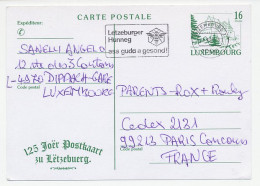 CARTE POSTALE
Expéditeur:
SANELLI ANGELO
L-4970 DIPPACH-GARE
LUXEMBOURG
Code postal
Lëtzebuerger
Hunneg
ass gudd a gesond!
16
LUXEMBOURG
PARENTS-ROX +
Cedex 2121
99213 PARIS CONCOURS
FRANCE
Code postal
125 Joër Postkaart
zu Lëtzebuerg.